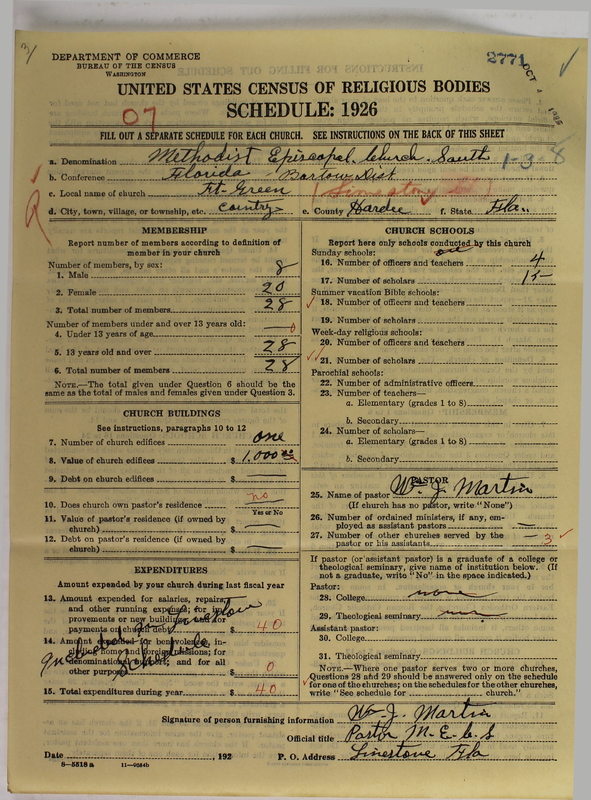 DEPARTMENT OF COMMERCE
BUREAU OF THE CENSUS
WASHINGTON
2771
OCT 4
UNITED STATES CENSUS OF RELIGIOUS BODIES
SCHEDULE: 1926
07
FILL OUT A SEPARATE SCHEDULE FOR EACH CHURCH. SEE INSTRUCTIONS ON THE BACK OF THIS SHEET
a. Denomination Methodist Episcopal Church. South 1-3-8
b. Conference Florida - Bartow Dist
c. Local name of church Ft. Green
d. City, town, village, or township, etc. country e. County Hardee f. State Fla.
MEMBERSHIP
Report number of members according to definition of member in your church
Number of members, by sex:
1. Male 8
2. Female 20
3. Total number of members 28
Number of members under and over 13 years old:
4. Under 13 years of age 0
5. 13 years old and over 28
6. Total number of members 28
NOTE.—The total given under Question 6 should be the same as the total of males and females given under Question 3.
CHURCH BUILDINGS
See instructions, paragraphs 10 to 12
7. Number of church edifices one
8. Value of church edifices $ 1,000 00
9. Debt on church edifices $
10. Does church own pastor's residence no
Yes or No
11. Value of pastor's residence (if owned by church) $
12. Debt on pastor's residence (if owned by church) $
EXPENDITURES
Amount expended by your church during last fiscal year
13. Amount expended for salaries, repairs, and other running expense; for improvements or new building; and for payments on church debt $ 40
14. Amount expended for benevolences, including home and foreign missions; for denominational support; and for all other purposes $ 0
Included in Limestone Schedule
15. Total expenditures during year $ 40
CHURCH SCHOOLS
Report here only schools conducted by this church
Sunday schools:
16. Number of officers and teachers 4
17. Number of scholars 15
Summer vacation Bible schools:
18. Number of officers and teachers
19. Number of scholars
Week-day religious schools:
20. Number of officers and teachers
21. Number of scholars
Parochial schools:
22. Number of administrative officers
23. Number of teachers—
a. Elementary (grades 1 to 8)
b. Secondary
24. Number of scholars—
a. Elementary (grades 1 to 8)
b. Secondary
PASTOR
25. Name of pastor Wm. J. Martin
(If church has no pastor, write "None")
26. Number of ordained ministers, if any, employed as assistant pastors
27. Number of other churches served by the pastor or his assistants 3
If pastor (or assistant pastor) is a graduate of a college or theological seminary, give name of institution below. (If not a graduate, write "No" in the space indicated.)
Pastor:
28. College none
29. Theological seminary none
Assistant pastor:
30. College
31. Theological seminary
NOTE.—Where one pastor serves two or more churches, Questions 28 and 29 should be answered only on the schedule for one of the churches; on the schedules for the other churches, write "See schedule for church."
Signature of person furnishing information Wm J. Martin
Official title Pastor M. E. C. S
Date , 192 P. O. Address Limestone Fla
8—5518a 11—9684b